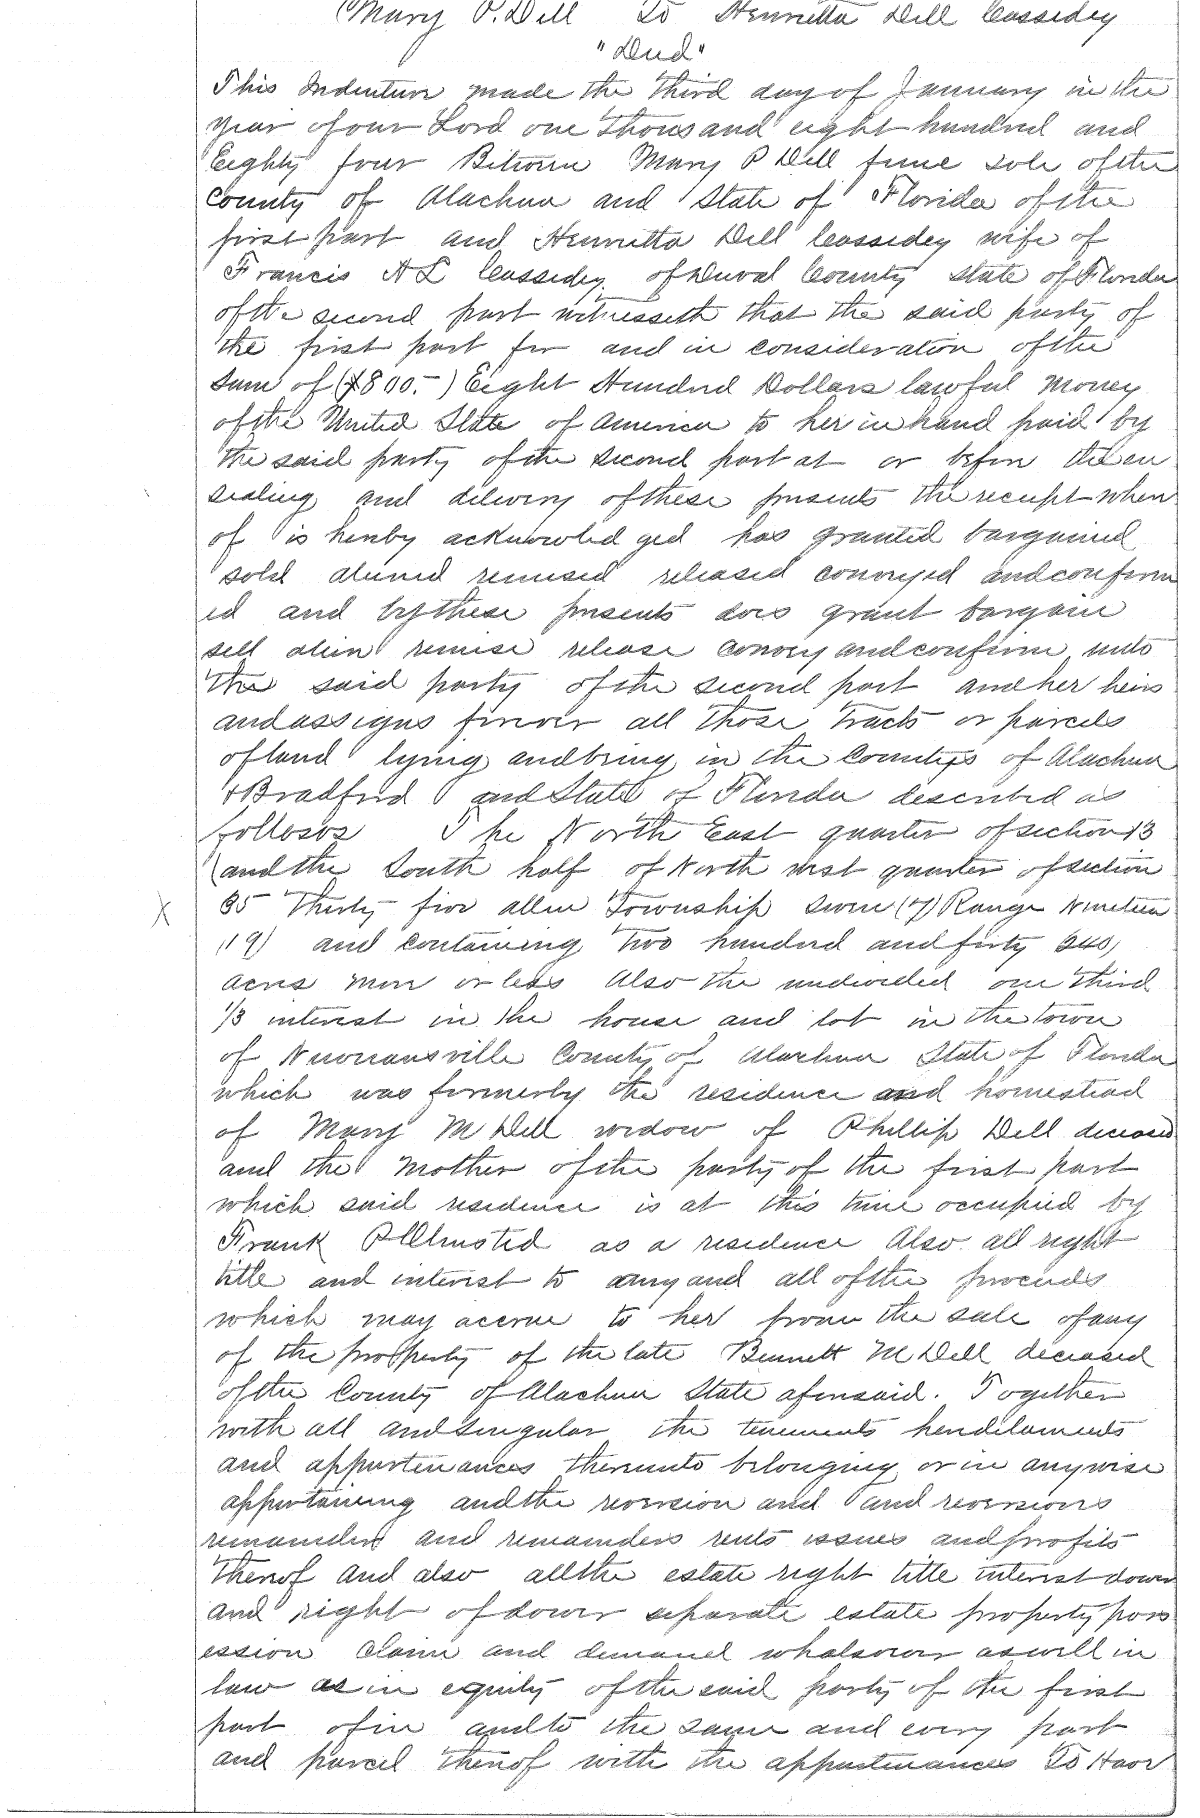 Mary P. Dell To Henrietta Dell Cassidey
"Deed"
This Indenture made the third day of January in the
year of our Lord one thousand eight hundred and
Eighty four Between Mary P Dell feme sole of the
County of Alachua and State of Florida of the
first part and Henrietta Dell Cassidey wife of
Francis A L Cassidey of Duval County State of Florida
of the second part witnesseth that the said party of
the first part for and in consideration of the
sum of ($800.-) Eight Hundred Dollars lawful money
of the United State of America to her in hand paid by
the said party of the second part at or before the en
sealing and delivery of these presents the receipt when
of is hereby acknowledged has granted bargained
sold aliened remised released conveyed and confirm
ed and by these presents does grant bargain
sell alien remise release convey and confirm unto
the said party of the second part and her heirs
and assigns forever all those tracts or parcels
of land lying and being in the Countys of Alachua
& Bradford and State of Florida described as
follows The North East quarter of section 13
and the South half of North west quarter of section
X 35 Thirty five all in Township seven (7) Range Nineteen
(19) and containing two hundred and forty 240,
acres more or less Also the undivided one third
1/3 interest in the house and lot in the town
of Newnansville County of Alachua State of Florida
which was formerly the residence and homestead
of Mary M Dell widow of Phillip Dell deceased
and the Mother of the party of the first part
which said residence is at this time occupied by
Frank P Olmsted as a residence Also all right
title and interest to any and all of the proceeds
which may accrue to her from the sale of any
of the property of the late Bennett M Dell deceased
of the County of Alachua State aforesaid. Together
with all and singular the tenements hereditaments
and appurtenances thereunto belonging or in anywise
appertaining and the reversion and and reversions
remainder and remainders rents issues and profits
thereof and also all the estate right title interest dower
and right of dower separate estate property poss
ession claim and demand whatsoever as well in
law as in equity of the said party of the first
part of in and to the same and every part
and parcel thereof with the appurtenances To Have